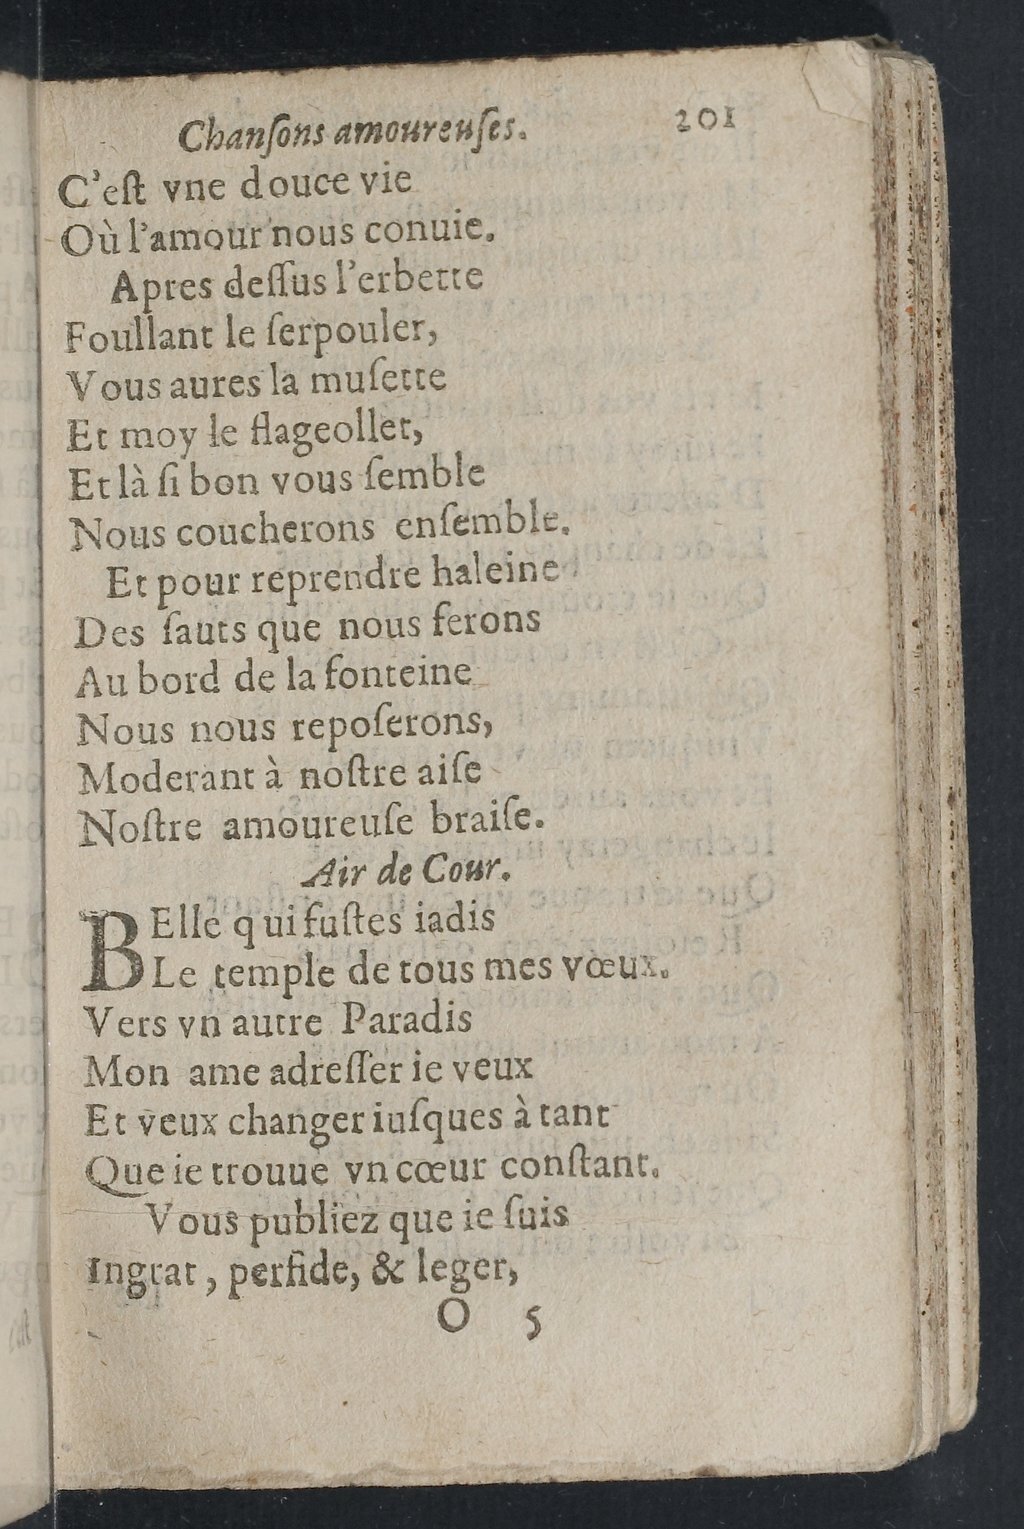 Chanſons amoureuſes. 201
C'eſt vne douce vie
Où l'amour nous conuie.
Apres deſſus l'erbette
Foullant le ſerpoulet,
Vous aures la muſette
Et moy le flageollet,
Et là ſi bon vous ſemble
Nous coucherons enſemble.
Et pour reprendre haleine
Des ſauts que nous ferons
Au bord de la fonteine
Nous nous repoſerons,
Moderant à noſtre aiſe
Noſtre amoureuſe braiſe.
Air de Cour.
BElle qui fuſtes iadis
Le temple de tous mes vœux.
Vers vn autre Paradis
Mon ame adreſſer ie veux
Et veux changer iuſques à tant
Que ie trouue vn cœur conſtant.
Vous publiez que ie ſuis
Ingrat, perfide, & leger,
O 5